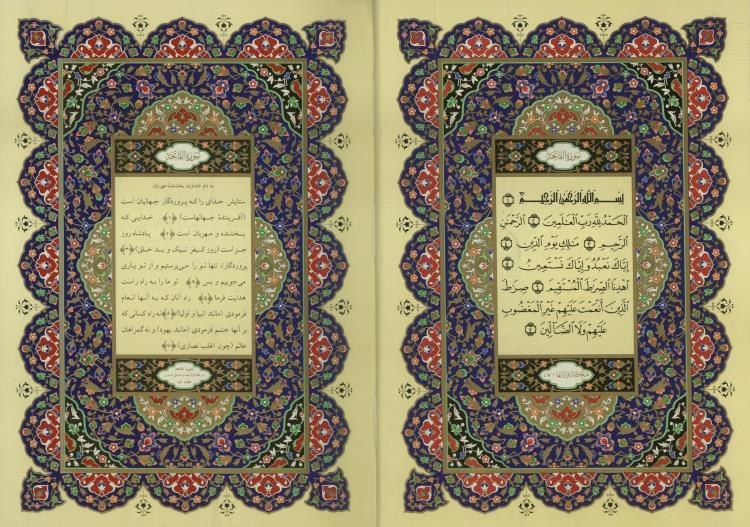 سورة الفاتحة
بِسْمِ اللَّهِ الرَّحْمَٰنِ الرَّحِيمِ ۝١
الْحَمْدُ لِلَّهِ رَبِّ الْعَالَمِينَ ۝٢ الرَّحْمَٰنِ
الرَّحِيمِ ۝٣ مَالِكِ يَوْمِ الدِّينِ ۝٤
إِيَّاكَ نَعْبُدُ وَإِيَّاكَ نَسْتَعِينُ ۝٥
اهْدِنَا الصِّرَاطَ الْمُسْتَقِيمَ ۝٦ صِرَاطَ
الَّذِينَ أَنْعَمْتَ عَلَيْهِمْ غَيْرِ الْمَغْضُوبِ
عَلَيْهِمْ وَلَا الضَّالِّينَ ۝٧
سورة الفاتحة
به نام خداوند بخشندهٔ مهربان
ستایش خدای را که پروردگار جهانیان است
(آفرینندهٔ جهانهاست) ﴿۱﴾ خدایی که
بخشنده و مهربان است ﴿۲﴾ پادشاه روز
جزاست (روز کیفر نیک و بد خلق) ﴿۳﴾
پروردگارا، تنها تو را می‌پرستیم و از تو یاری
می‌جوییم و بس ﴿۴﴾ تو ما را به راه راست
هدایت فرما ﴿۵﴾ راه آنان که به آنها انعام
فرمودی (مانند انبیا و اولیا) ﴿۶﴾ نه راه کسانی که
بر آنها خشم فرمودی (مانند یهود) و نه گمراهان
عالم (چون اغلب نصاری) ﴿۷﴾
سوره فاتحه
هفت آیه